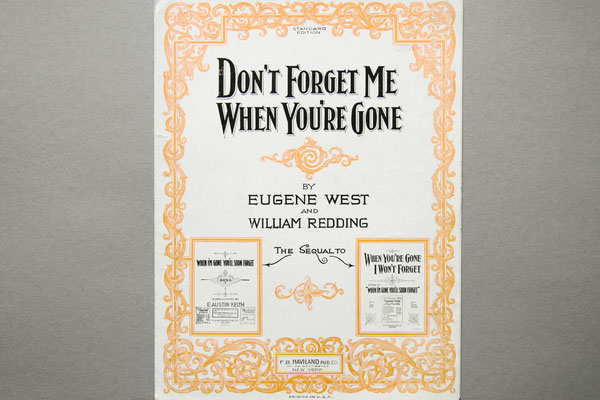 STANDARD
EDITION
DON'T FORGET ME
WHEN YOU'RE GONE
BY
EUGENE WEST
AND
WILLIAM REDDING
THE SEQUAL TO
WHEN I'M GONE YOU'LL SOON FORGET
SONG
E. AUSTIN KEITH
WHEN YOU'RE GONE
I WON'T FORGET
"WHEN I'M GONE YOU'LL SOON FORGET"
F.B. HAVILAND PUB. CO.
NEW YORK
PRINTED IN U.S.A.